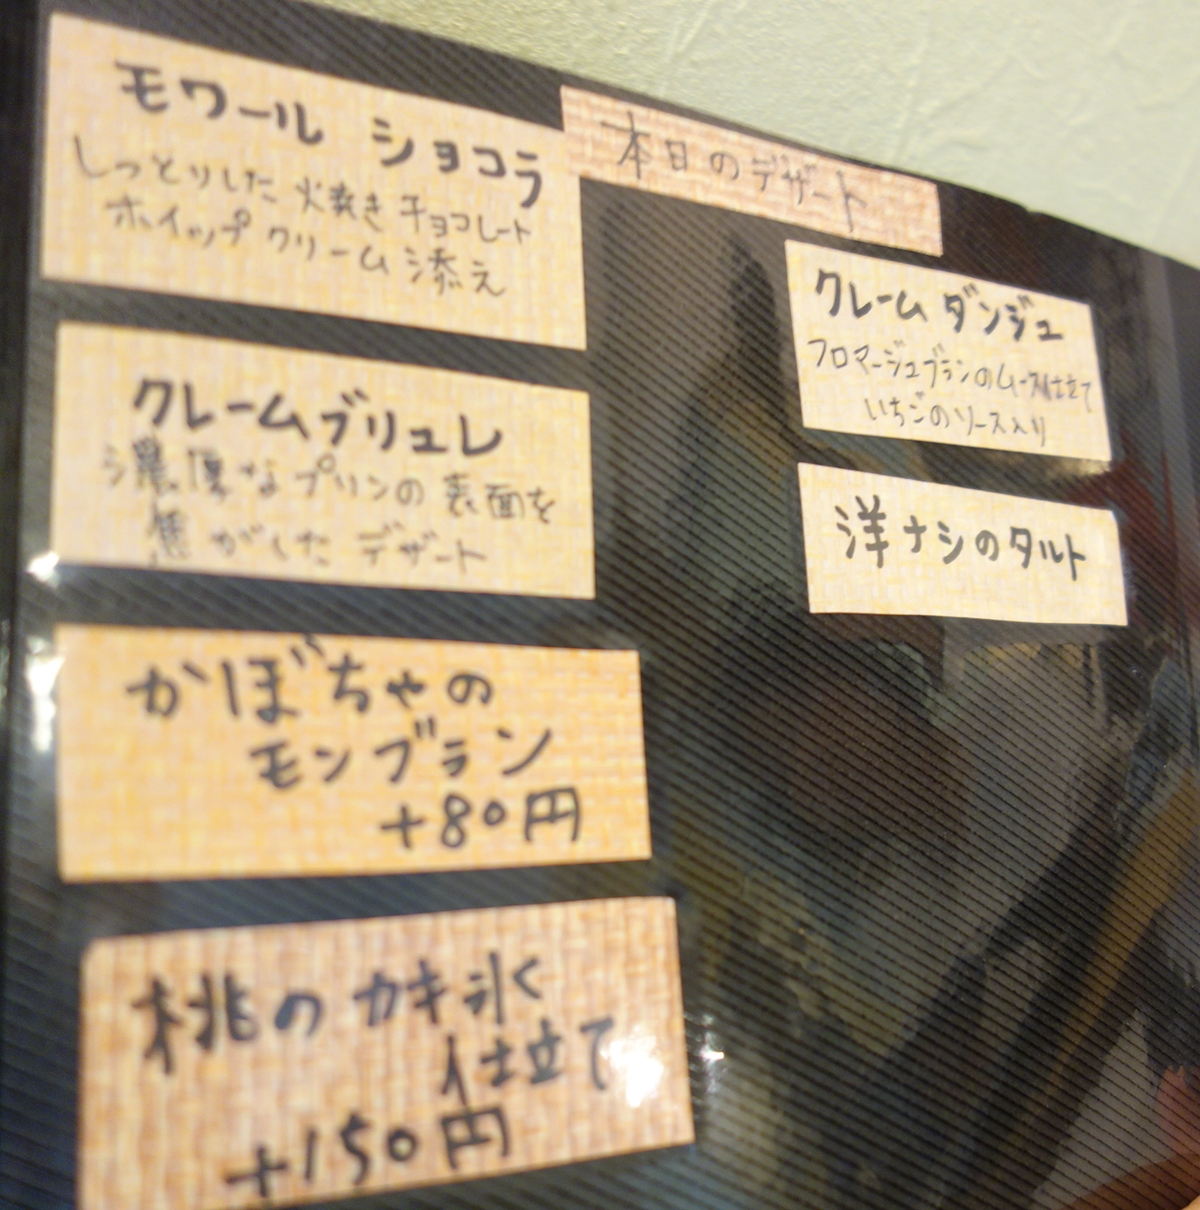 本日のデザート
モワール ショコラ
しっとりした 焼き チョコレート
ホイップ クリーム 添え
クレームブリュレ
濃厚なプリンの表面を
焦がした デザート
かぼちゃの
モンブラン
+80円
桃のカキ氷
仕立て
+150円
クレーム ダンジュ
フロマージュブランのムース仕立て
いちごのソース入り
洋ナシのタルト